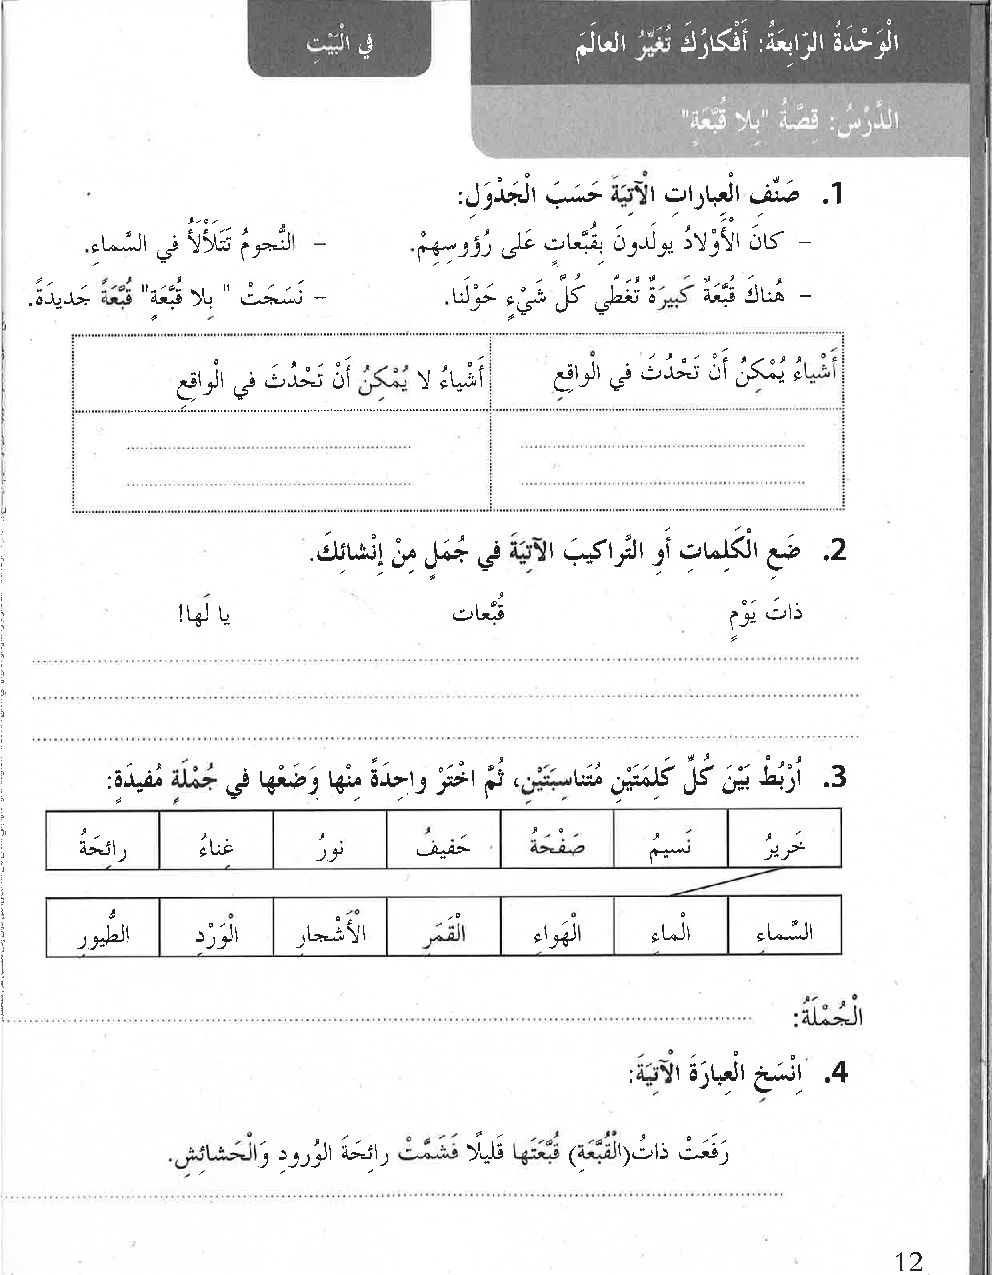 الْوَحْدَةُ الرّابِعَةُ: أَفْكارُكَ تُغَيِّرُ الْعالَمَ
في الْبَيْتِ
الدَّرْسُ: قِصَّةُ "بِلا قُبَّعَةٍ"
1. صَنِّفِ الْعِباراتِ الْآتِيَةَ حَسَبَ الْجَدْوَلِ:
- كانَ الْأَوْلادُ يولَدونَ بِقُبَّعاتٍ عَلى رُؤوسِهِمْ. - النُّجومُ تَتَلَأْلَأُ في السَّماءِ.
- هُناكَ قُبَّعَةٌ كَبيرَةٌ تُغَطّي كُلَّ شَيْءٍ حَوْلَنا. - نَسَجَتْ " بِلا قُبَّعَةٍ" قُبَّعَةً جَديدَةً.
أَشْياءُ يُمْكِنُ أَنْ تَحْدُثَ في الْواقِعِ أَشْياءُ لا يُمْكِنُ أَنْ تَحْدُثَ في الْواقِعِ
2. ضَعِ الْكَلِماتِ أَوِ التَّراكيبَ الْآتِيَةَ في جُمَلٍ مِنْ إِنْشائِكَ.
ذاتَ يَوْمٍ قُبَّعات يا لَها!
3. أُرْبُطْ بَيْنَ كُلِّ كَلِمَتَيْنِ مُتَناسِبَتَيْنِ، ثُمَّ اخْتَرْ واحِدَةً مِنْها وَضَعْها في جُمْلَةٍ مُفيدَةٍ:
خَريرُ نَسيمُ صَفْحَةُ حَفيفُ نورُ غِناءُ رائِحَةُ
السَّماءِ الْماءِ الْهَواءِ الْقَمَرِ الْأَشْجارِ الْوَرْدِ الطُّيورِ
الْجُمْلَةُ:
4. اِنْسَخِ الْعِبارَةَ الْآتِيَةَ:
رَفَعَتْ ذاتُ(الْقُبَّعَةِ) قُبَّعَتَها قَليلًا فَشَمَّتْ رائِحَةَ الْوُرودِ وَالْحَشائِشِ.
12